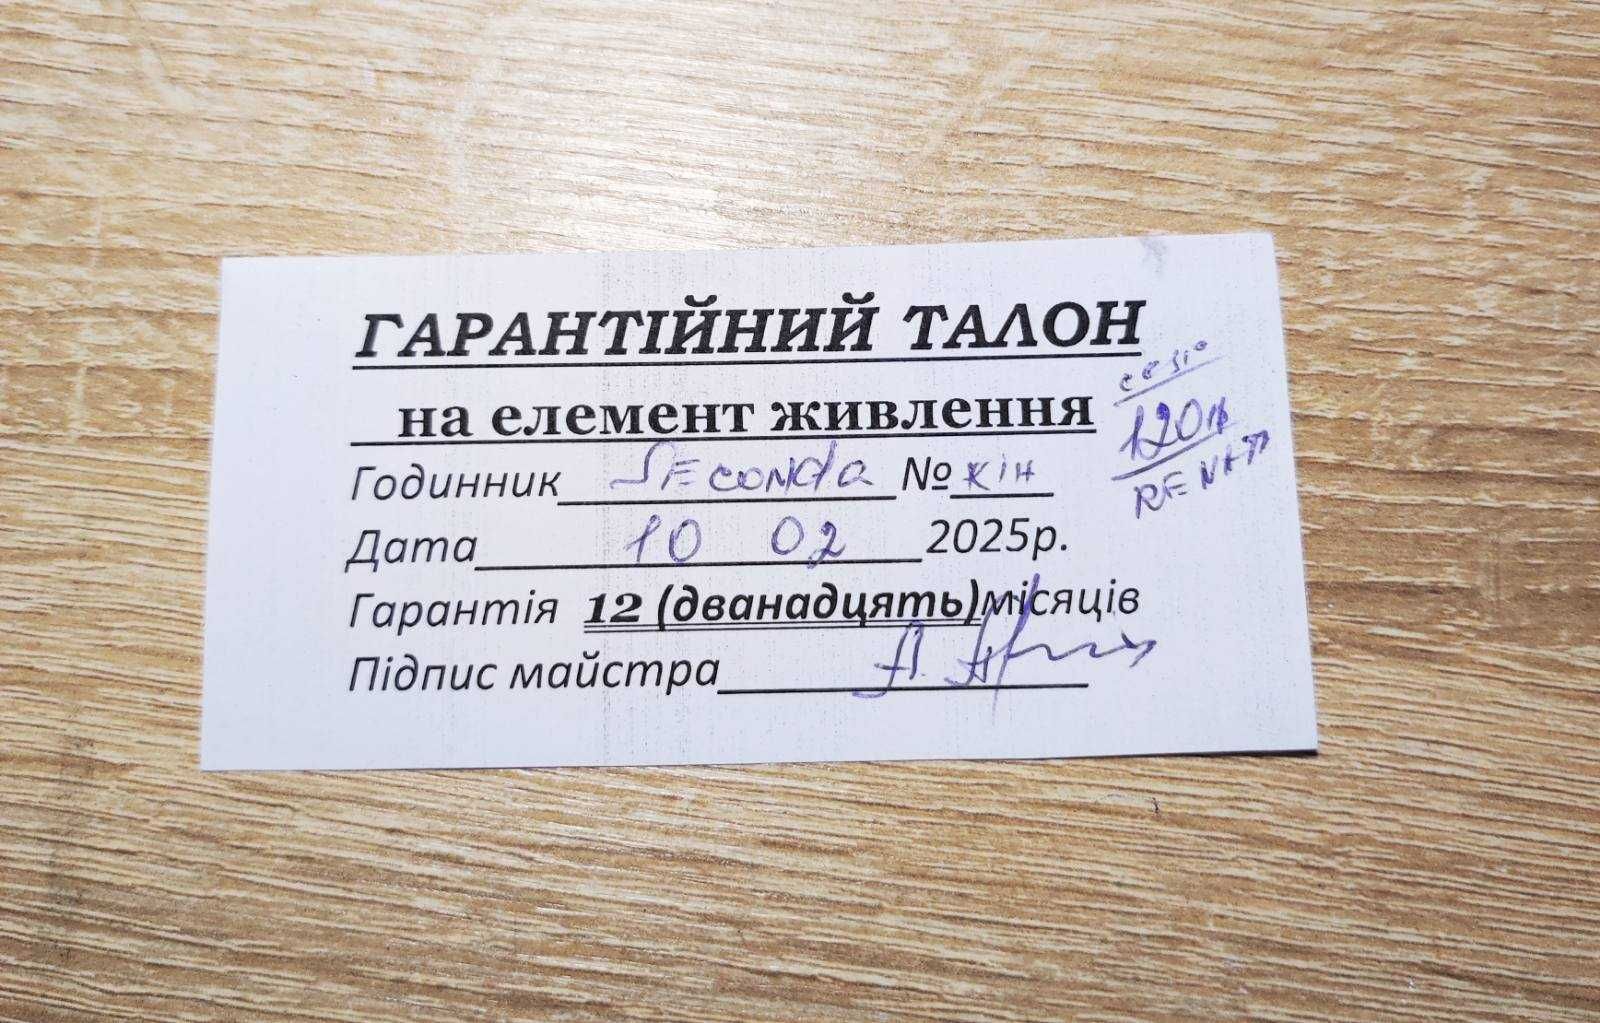 ГАРАНТІЙНИЙ ТАЛОН
на елемент живлення
Годинник Seconda № кін
Дата 10 02 2025р.
Гарантія 12 (дванадцять)місяців
Підпис майстра
120
RENATA